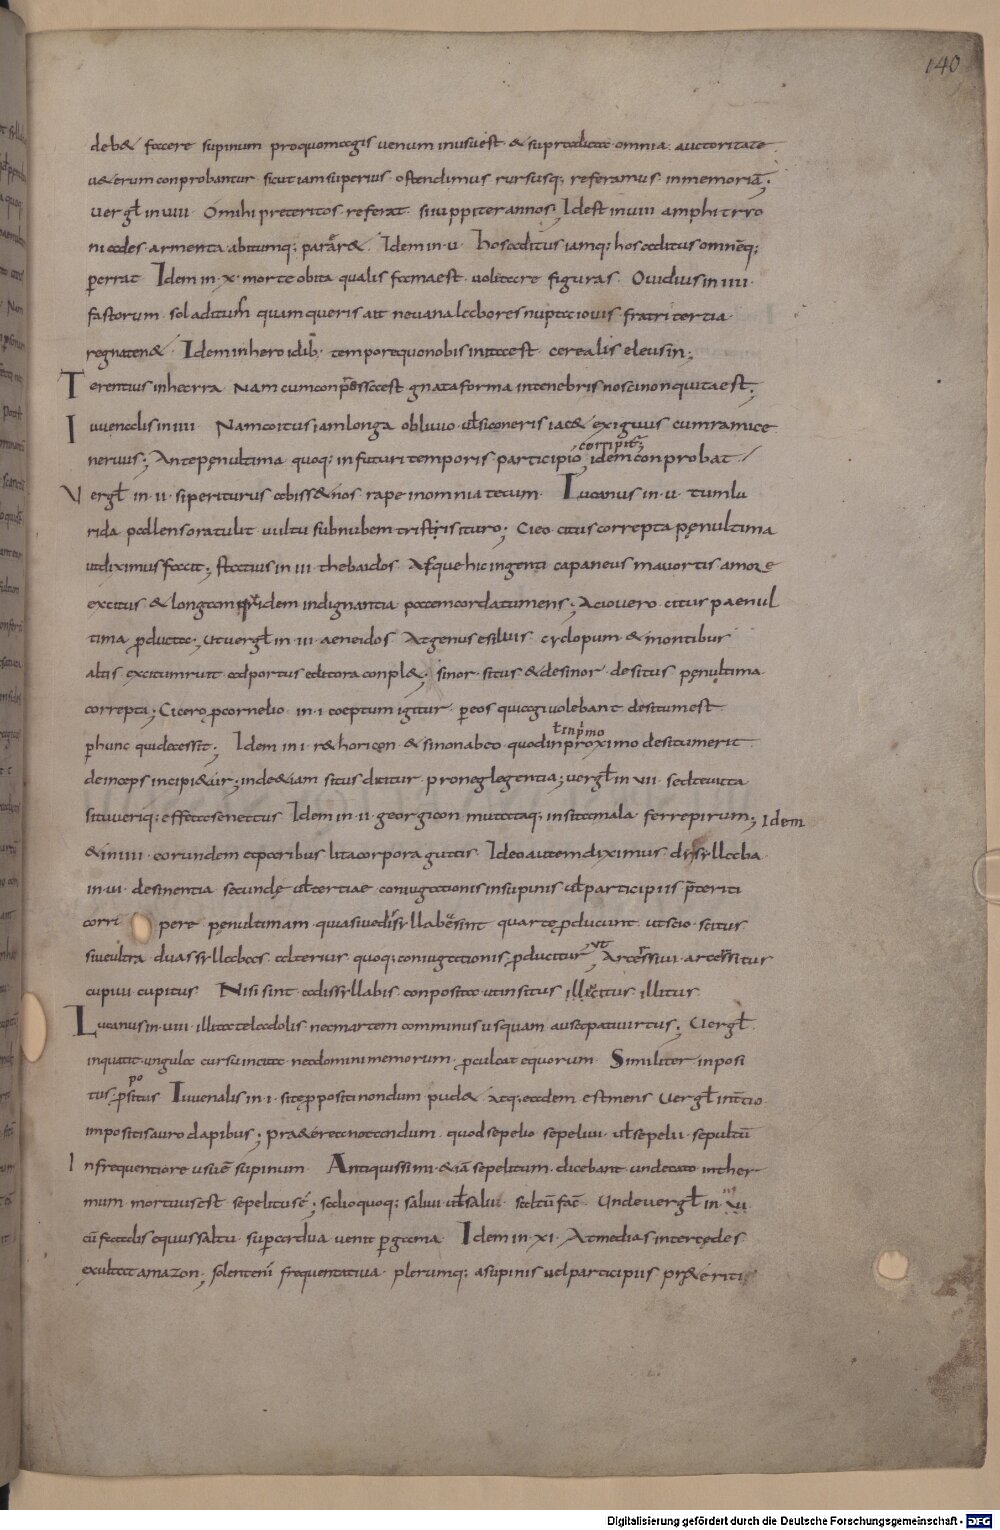 140
deb& facere supinum proquomagis venum inusuest & supradicta omnia auctoritate
u&erum conprobantur sicut iam superius ostendimus rursusq; referamus inmemoriā;
Vergł in viii O mihi preteritos referat si iuppiter annos; Idest in viii amphitrio
niades armenta abitumq; parar& Idem in v Hos aditus iamq; hos aditus omnēq;
perrat Idem in x morte obita qualis fama est volitare figuras Ovidius in iiii
fastorum sol aditum quam queris ait ne vana labores nupta iovis fratri tertia
regna ten& Idem in heroidib; tempore quo nobis inita est cerealis eleusin;
Terentius in hecyra Nam cum conpressa est gnata forma in tenebris nosci non quita est;
Iuvenalis in iiii Nam coitus iam longa oblivio uł si coneris iac& exiguus cum ramice
corripit;
nervus; Antepenultima quoq; in futuri temporis participio idem conprobat
Vergł in ii si periturus abis & nos rape in omnia tecum Lucanus in v tum lu
rida pallens ora tulit vultu sub nubem tristis ituro; Cieo citus correpta penultima
ut diximus facit; statius in iii thebaidos Atque hic ingenti capaneus mavortis amore
excitus & longam pridem indignantia pacem corda tumens; A cio vero citus paenul
tima producta; Ut vergł in iii aeneidos At genus e silvis cyclopum & montibus
altis excitum ruit ad portus & litora conpl&; sinor situs & desinor desitus penultima
correpta; Cicero pro cornelio in i coeptum igitur per eos qui agi volebant desitum est
ł in p̄mo
per hunc qui decessit; Idem in i r&horicon & si non ab eo quod in proximo desitum erit
deinceps incipi&ur; inde &iam situs dicitur pro neglegentia; vergł in vii sed te victa
situ veriq; effeta senectus Idem in ii georgicon mutataq; insita mala ferre pirum; Idem
& in iiii eorundem aparibus lita corpora guttis Ideo autem diximus disyllaba
in vi desinentia secunde uł tertiae coniugationis in supinis uł participiis p̄teriti
corripere penultimam quia sive disyllaba sint quarte producunt ut scio scitus
ut
sive ultra duas syllabas alterius quoq; coniugationis producitur Arcessivi arcessitus
cupivi cupitus Nisi sint a disyllabis conposita ut insitus illicitus illitus
Lucanus in viii illita tela dolis nec martem comminus usquam ausa pati virtus; Vergł
inquatit ungula cursu incitat nec domini memorum proculcat equorum Similiter inposi
po
tus p̄situs Iuvenalis in i si te propositi nondum pud& atq; eadem est mens Vergł in
impositi sauro dapibus; pr&erea notandum quod sepelio sepelivi uł sepelii sepultū
In frequentiore usu ē supinum Antiquissimi &iā sepelitum dicebant unde cato in ther
mum mortuus est sepelitus ē; salio quoq; salivi uł salui saltū fac̄ Unde vergł in vi
cū fatalis equus saltu super ardua venit pergama Idem in xi At medias inter cedes
exultat amazon; solent enī frequentativa plerumq; a supinis vel participiis pr&eriti
Digitalisierung gefördert durch die Deutsche Forschungsgemeinschaft - DFG